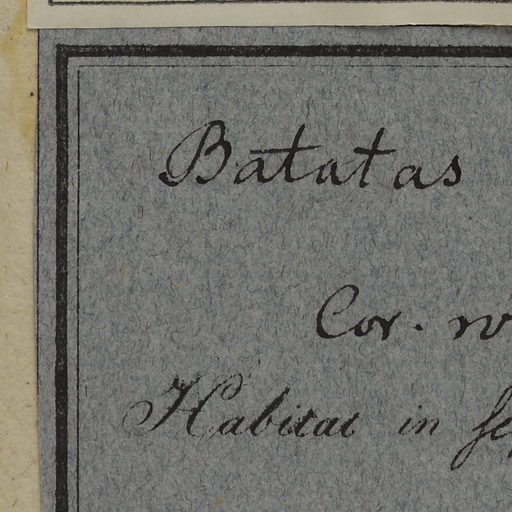 Batatas
Cor.
Habitat in